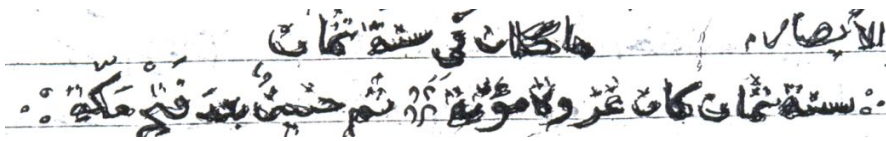 ما كان في سنة ثمان
سنة ثمان كان غزوة مؤتة ثم حنين بعد فتح مكة